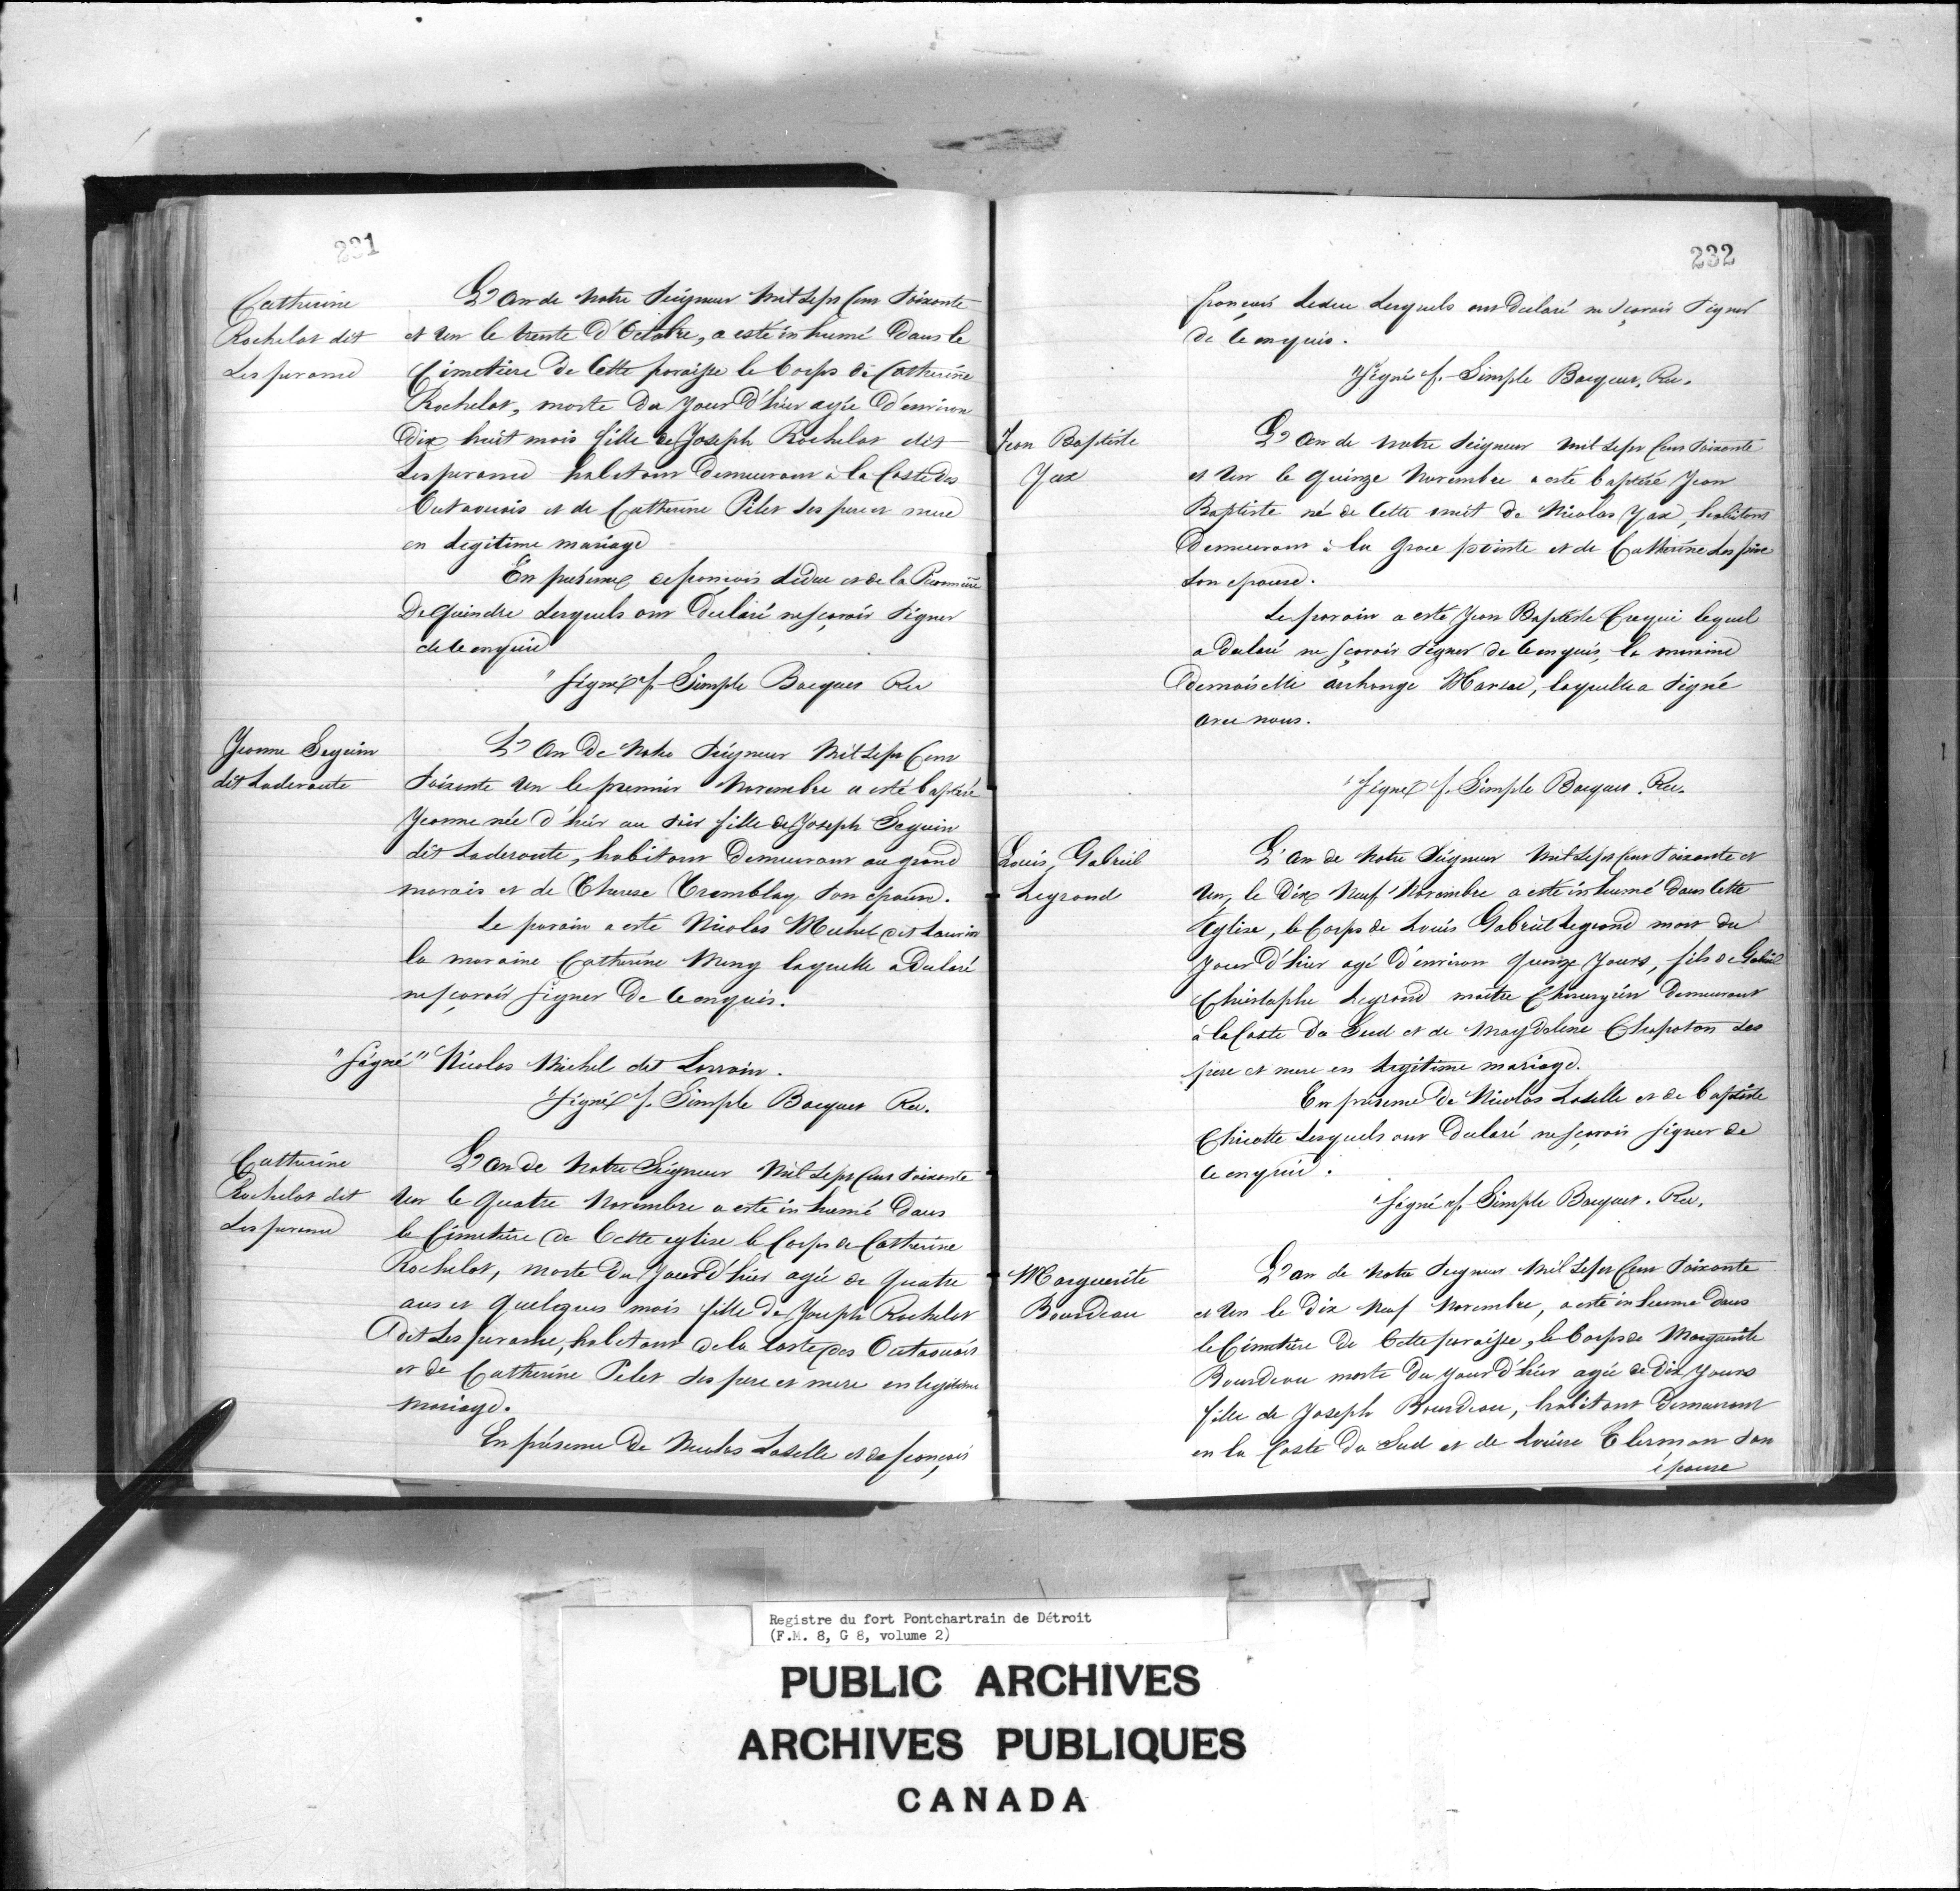 231
Catherine
Rochelot dit
Lesperance
L'An de Notre Seigneur Mil Sept Cent Soixante
et Un le trente d'Octobre, a esté inhumé Dans le
Cimetiere de Cette paroisse le Corps de Catherine
Rochelot, morte du jour d'hier agée d'environ
Dix huit mois fille de Joseph Rochelot dit
Lesperance habitant Demeurant à la Coste des
Outaouois et de Catherine Pilet ses pere et mere
en legitime mariage
En presence de françois Leduc et de la
De Quindre Lesquels ont Declaré ne sçavoir Signer
de ce enquis
"Signé" f. Simple Bocquet Rec
Jeanne Seguin
dit Laderoute
L'An De Notre Seigneur Mil Sept Cent
Soixante Un le premier Novembre a esté baptisé
Jeanne née d'hier au soir fille de Joseph Seguin
dit Laderoute, habitant Demeurant au grand
marais et de Therese Tremblay son epouse.
Le parain a esté Nicolas Michel dit Laurin
la maraine Catherine Meny laquelle a Declaré
ne sçavoir signer De ce enquis.
"Signé" Nicolas Michel dit Lorrain.
"Signé" f. Simple Bocquet Rec.
Catherine
Rochelot dit
Lesperance
L'An de Notre Seigneur Mil Sept Cent Soixante
Un le Quatre Novembre a esté inhumé Dans
le Cimetiere de Cette eglise le Corps de Catherine
Rochelot, morte Du Jour d'hier agée de Quatre
ans et Quelques mois fille de Joseph Rochelot
dit Lesperance, habitant de la Coste des Outaouois
et de Catherine Pilet ses pere et mere en legitime
mariage.
En présence De Nicolas Laselle et de françois
232
françois Leduc Lesquels ont Declaré ne sçavoir Signer
de ce enquis.
"Signé f. Simple Bocquet, Rec.
Jean Baptiste
Yax
L'An de Notre Seigneur Mil Sept Cent Soixante
et Un le Quinze Novembre a esté baptisé Jean
Baptiste né de Cette nuit de Nicolas Yax, habitant
Demeurant à la Grace pointe et de Catherine
son epouse.
Le parain a esté Jean Baptiste Crequi lequel
a Declaré ne sçavoir Signer de ce enquis, la maraine
Demoiselle archange Marsac, laquelle a Signé
avec nous.
"Signé f. Simple Bocquet. Rec.
Louis, Gabriel
Legrand
L'An de Notre Seigneur Mil Sept Cent Soixante et
Un, le Dix Neuf Novembre a esté inhumé Dans Cette
Eglise, le Corps de Louis Gabriel Legrand mort du
Jour d'hier agé d'environ Quinze Jours, fils de Gabriel
Christophe Legrand maître Chirurgien Demeurant
à la Coste Du Sud et de Magdelene Chapoton ses
pere et mere en legitime mariage.
En presence De Nicolas Laselle et de baptiste
Chicotte Lesquels ont Declaré ne sçavoir signer de
ce enquis.
"Signé f. Simple Bocquet. Rec.
Marguerite
Bourdeau
L'an de Notre Seigneur Mil Sept Cent Soixante
et Un le Dix Neuf Novembre, a esté inhumé Dans
le Cimetiere de Cette paroisse, le Corps de Marguerite
Bourdeau morte Du Jour d'hier agée de Dix Jours
fille de Joseph Bourdeau, habitant Demeurant
en la Coste Du Sud et de Louise Clermon son
épouse
Registre du fort Pontchartrain de Détroit
(F.M. 8, G 8, volume 2)
PUBLIC ARCHIVES
ARCHIVES PUBLIQUES
CANADA